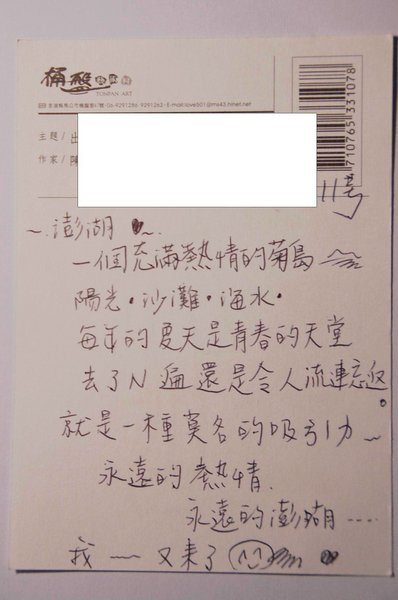 桶盤
TONPAN ART
06-9291286·9291263·E-mail:love601@ms43.hinet.net
主題/出
作家/陳
4710765331078
11号
~澎湖♥~
一個充滿熱情的菊島
陽光·沙灘·海水·
每年的夏天是青春的天堂
去了N遍還是令人流連忘返。
就是一種莫名的吸引力~
永遠的熱情.
永遠的澎湖----
我~~又來了